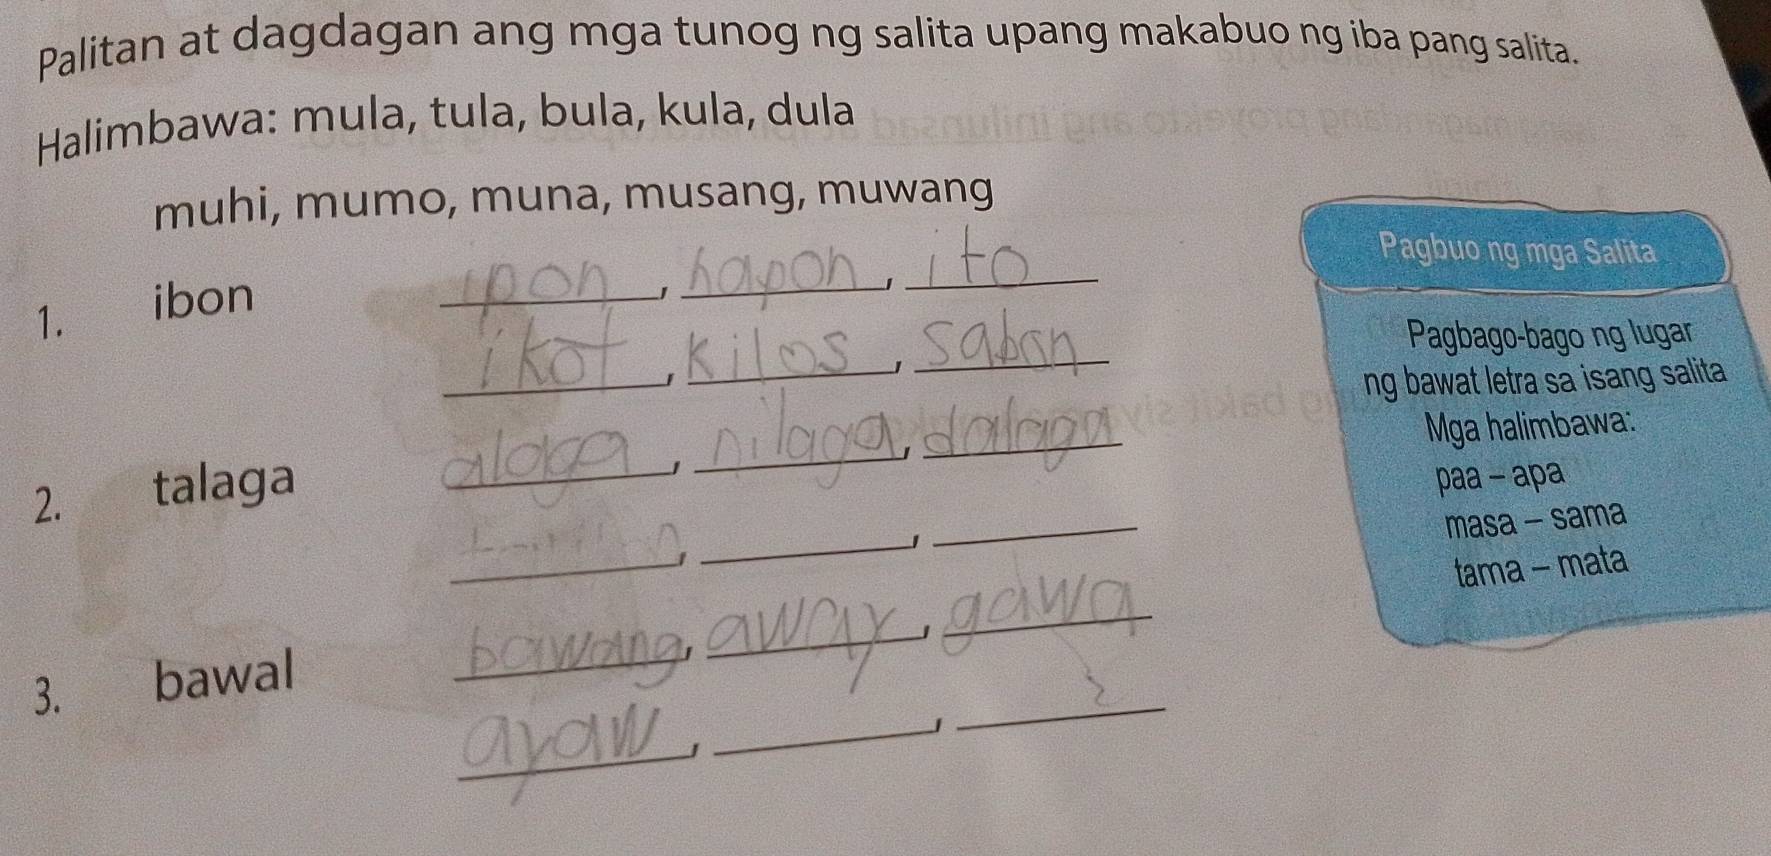 Palitan at dagdagan ang mga tunog ng salita upang makabuo ng iba pang salita.
Halimbawa: mula, tula, bula, kula, dula
muhi, mumo, muna, musang, muwang
1. ibon ipon, hapon, ito
ikot, kilos, sabon
2. talaga alaga, nilaga, dalaga
3. bawal bawang, away, gawa
ayaw
Pagbuo ng mga Salita
Pagbago-bago ng lugar
ng bawat letra sa isang salita
Mga halimbawa:
paa – apa
masa – sama
tama – mata